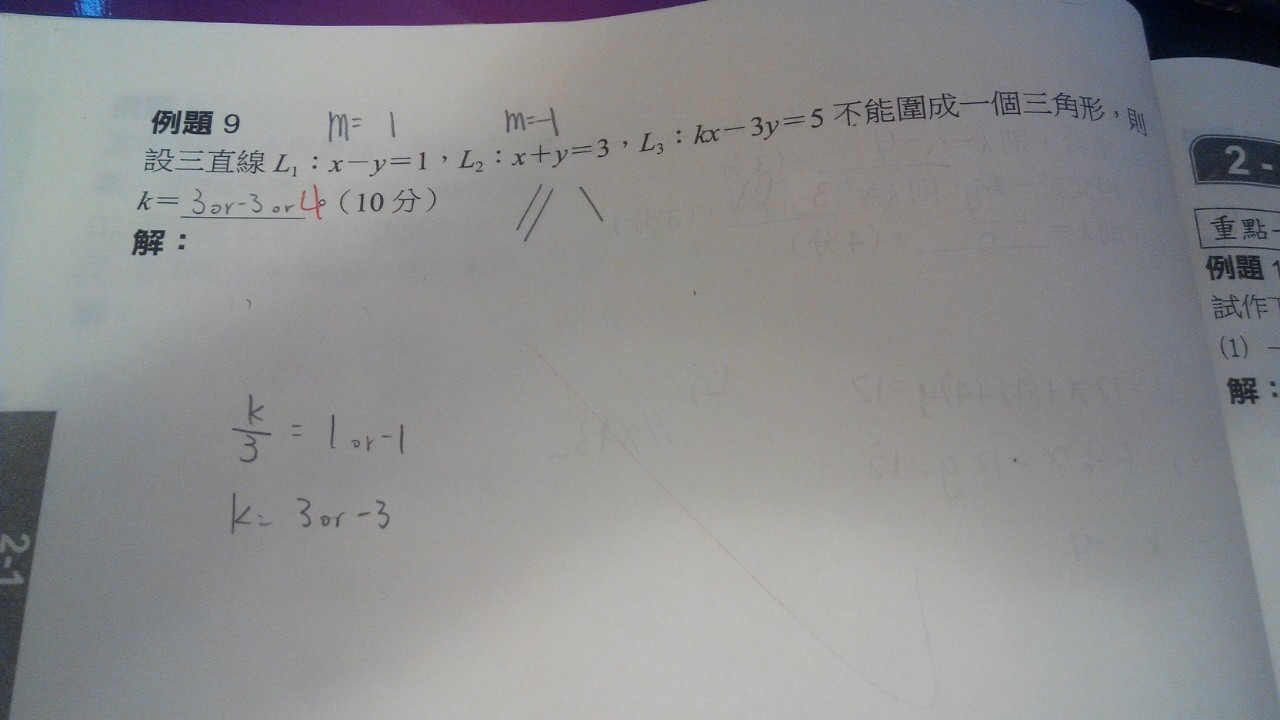 例題 9
m= 1 m=-1
設三直線 L₁：x－y＝1，L₂：x＋y＝3，L₃：kx－3y＝5 不能圍成一個三角形，則
k＝3 or -3 or 4。（10 分）
解：
k/3 = 1 or -1
k= 3 or -3
2-1
2-
重點一
例題 1
試作下
(1) 一
解：